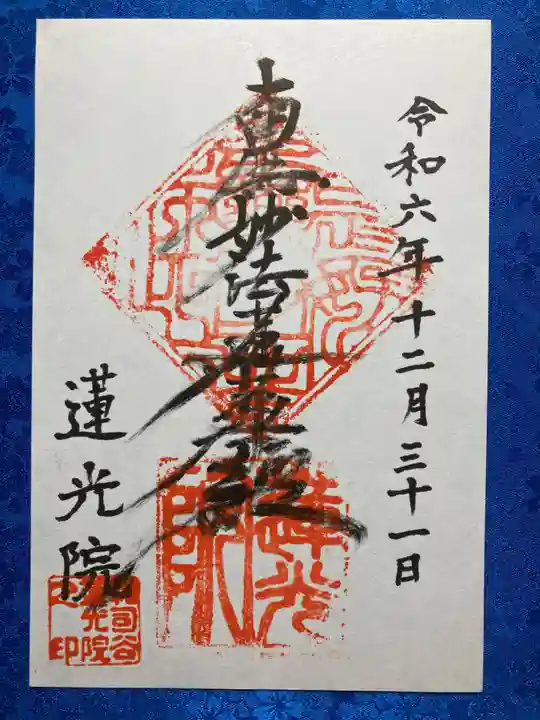 令和六年十二月三十一日
南無妙法蓮華経
蓮光院
蓮光
院
司谷
光院
之印